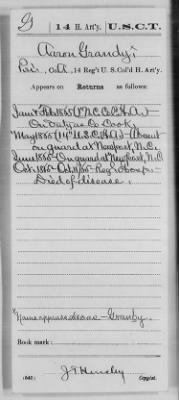 G 14 H. Art'y. U.S.C.T.
Aaron Grandy
Priv., Co. A, 14 Reg't U. S. Col'd H. Art'y.
Appears on Returns as follows:
Jan & Feb 1865 (1st N.C.C.H.A.)
On duty as Co Cook.
May 1865 (14" U.S.C.H.A.) - Absent
on guard at Newport, N.C.
June 1865 - On guard at Newport, N.C.
Oct 1865 - Oct 1865
Died of disease.
Name appears also as - Granby.
Book mark:
Copyist.